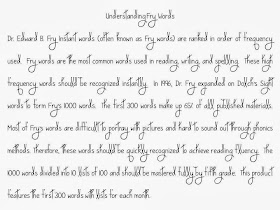 Understanding Fry Words
Dr. Edward B. Fry Instant words (often known as Fry words) are ranked in order of frequency
used. Fry words are the most common words used in reading, writing, and spelling. These high
frequency words should be recognized instantly. In 1996, Dr. Fry expanded on Dolch's Sight
Words to form Frys 1000 words. The first 300 words make up 65% of all published materials.
Most of Fry's words are difficult to portray with pictures and hard to sound out through phonics
methods, therefore, these words should be quickly recognized to achieve reading fluency. The
1000 words divided into 10 lists of 100 and should be mastered fully by fifth grade. This product
features the first 300 words with lists for each month.